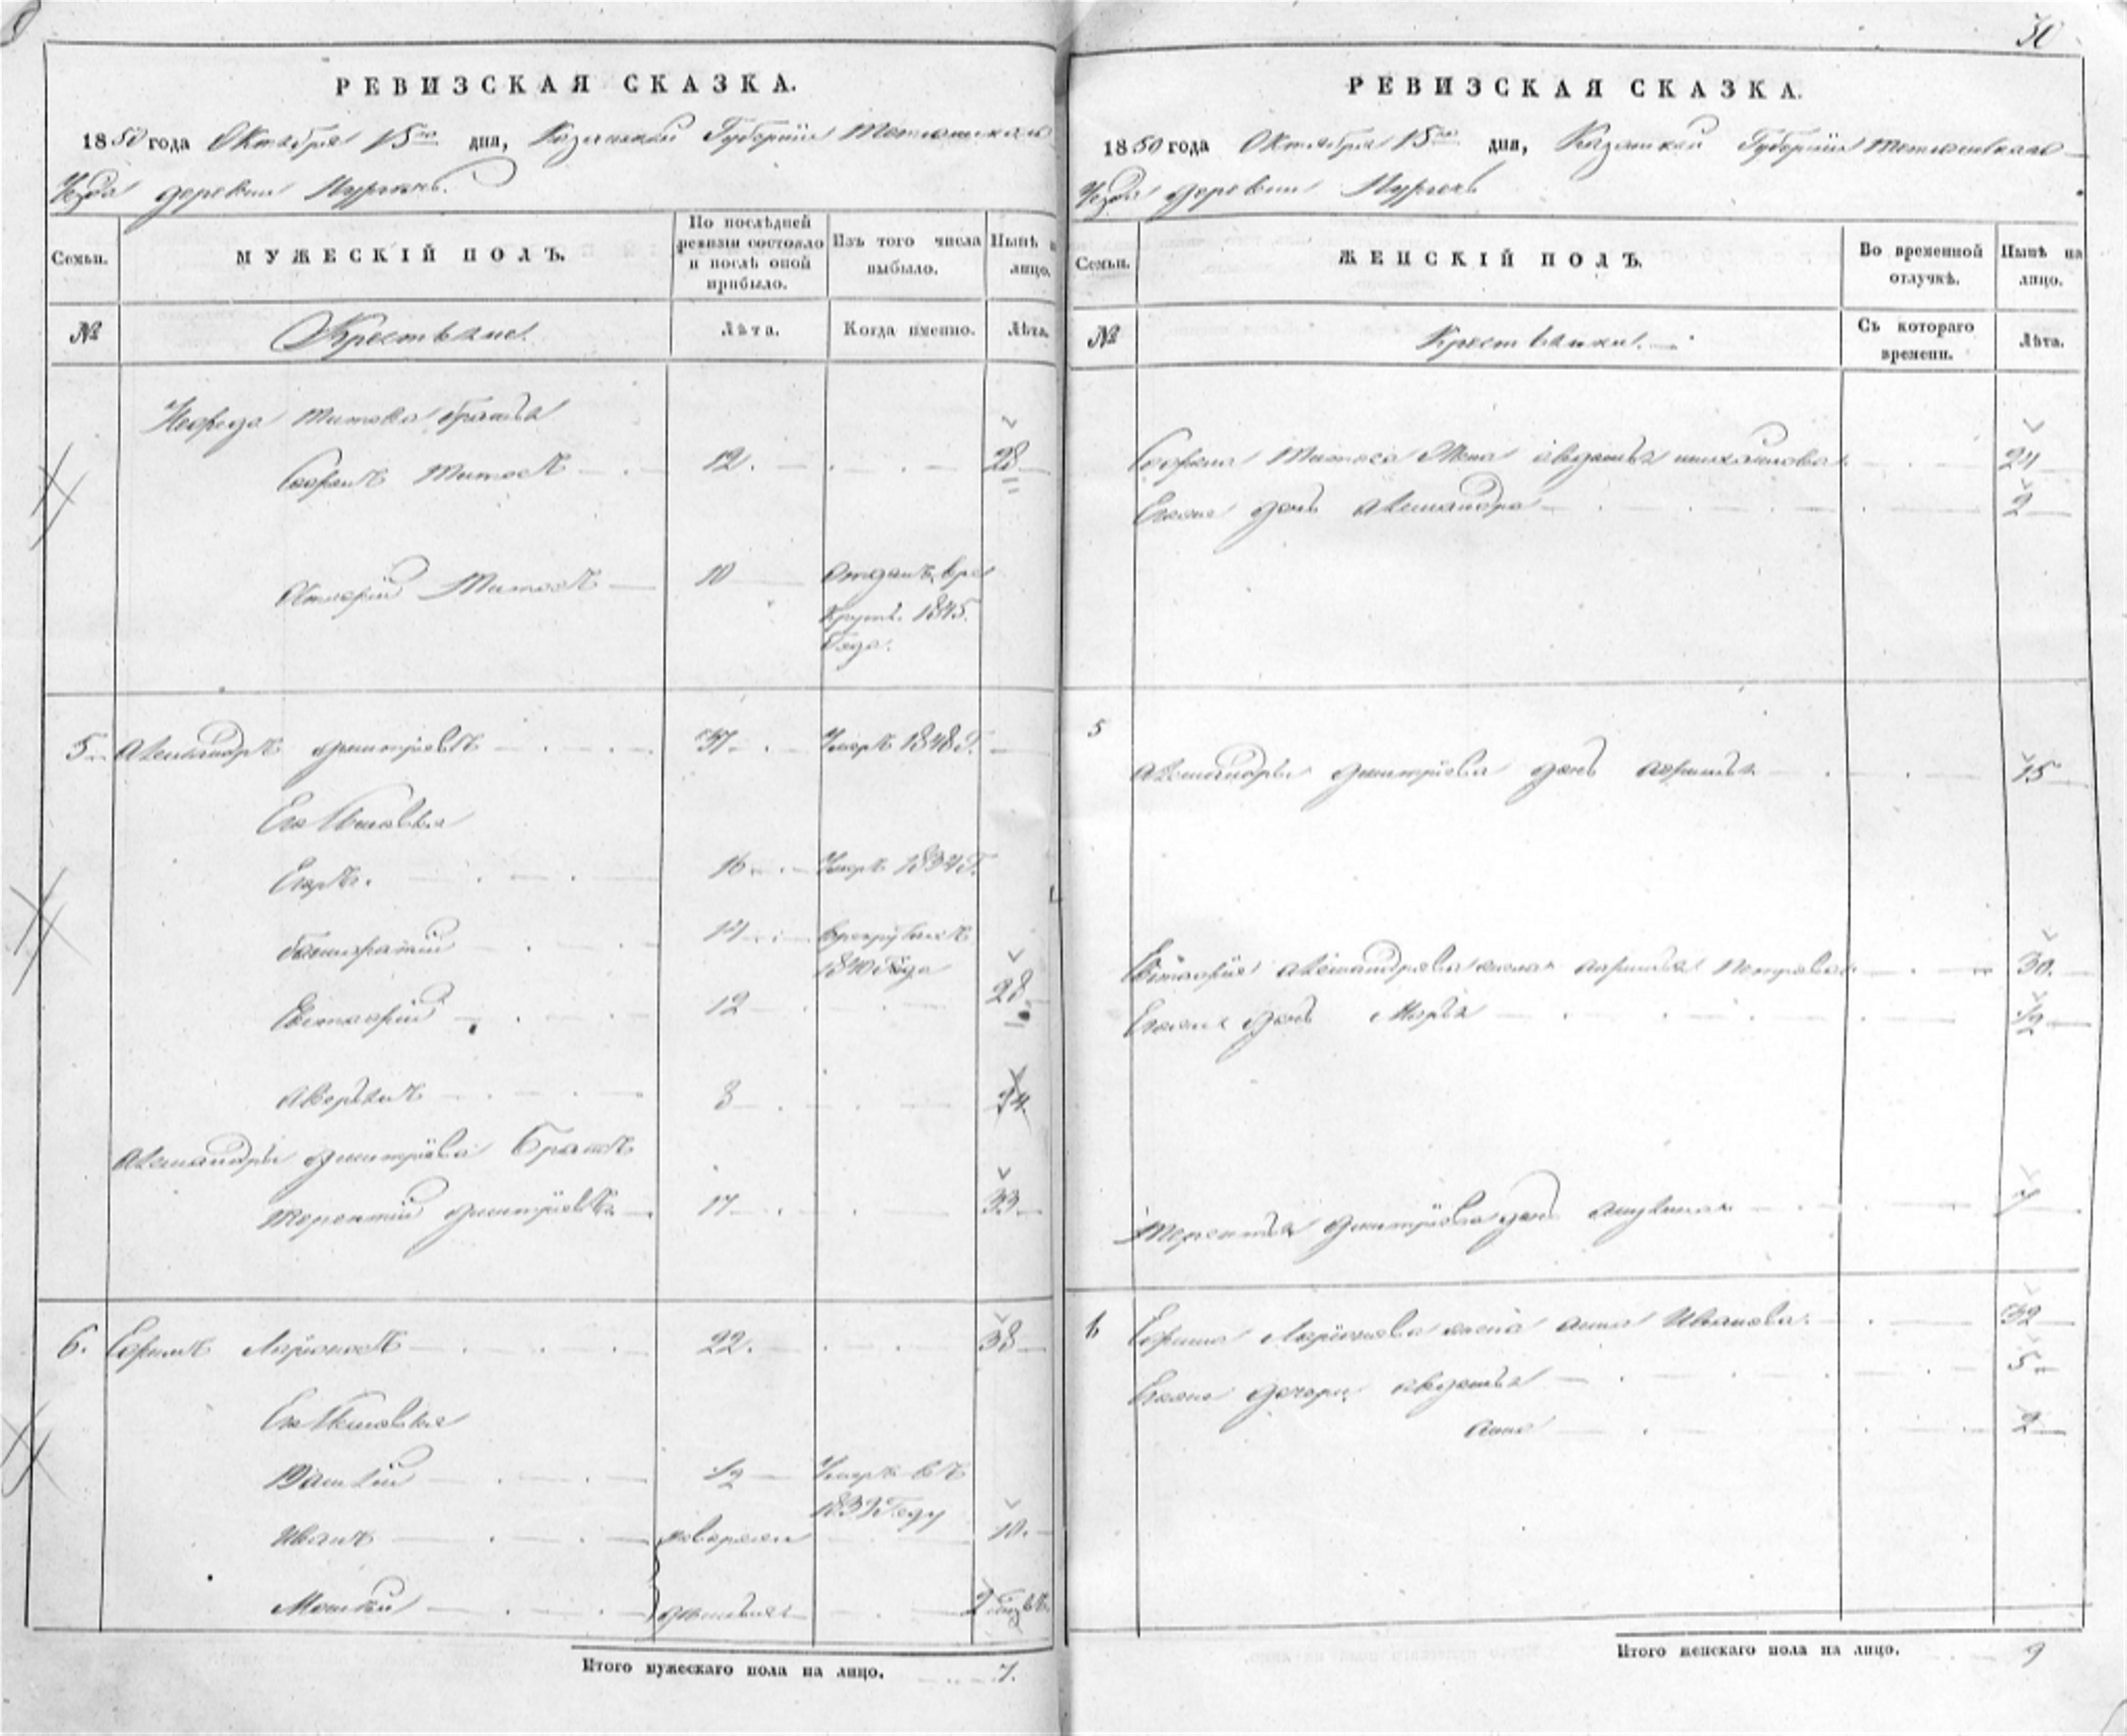 РЕВИЗСКАЯ СКАЗКА.
1850 года Октября 15го дня, Казанской Губернии Тетюшскаго
Уезда деревни
Семьи.
МУЖЕСКІЙ ПОЛЪ.
По послѣдней ревизіи состояло и послѣ оной прибыло.
Изъ того числа выбыло.
Нынѣ на лицо.
№
Крестьяне.
Лѣта.
Когда именно.
Лѣта.
Титова братья
Титовъ 12. 28
Титовъ 10 Отданъ в ре
крути. 1845.
Года.
5 Александръ Дмитріевъ 37 Умеръ 1848 Г.
Его Сыновья
Егоръ. 16 Умеръ 1834 Г.
14 в рекрутахъ
1840 Года
Евстафій 12 28
Аверьянъ 8 24
Александры Дмитріева Братъ
Терентій Дмитріевъ 17 33
6. Ефимъ Ларіоновъ 22. 38
Его Сыновья
Василій 1/2 Умеръ въ
1839 Году
Иванъ 10.
Моисей 2
Итого мужескаго пола на лицо. 7.
30
РЕВИЗСКАЯ СКАЗКА.
1850 года Октября 15го дня, Казанской Губернии Тетюшскаго
Уезда деревни
Семьи.
ЖЕНСКІЙ ПОЛЪ.
Во временной отлучкѣ.
Нынѣ на лицо.
№
Крестьянки.
Съ котораго времени.
Лѣта.
Титова Жена Авдотья 24
Егоже дочь Александра 2
5
Александры Дмитріева дочь 15
Евстафія Александрова жена Петрова 30.
Егоже дочь Марья 1/2
Терентья Дмитріева дочь Акулина 7
6 Ефима Ларіонова жена Анна Иванова 32
Егоже дочери Авдотья 5
Анна 2
Итого женскаго пола на лицо. 9